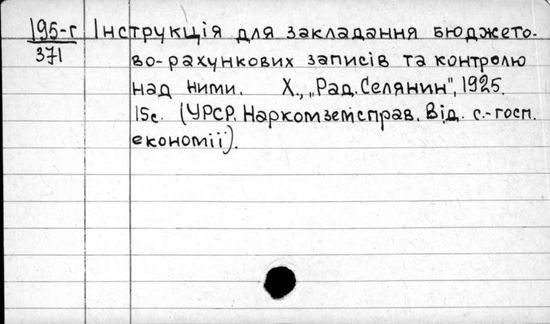 195-г Інструкція для закладання бюджето-
371 во-рахункових записів та контролю
над ними. Х., „Рад. Селянин", 1925.
15с. (УРСР. Наркомземсправ. Від. с.-госп.
економії).